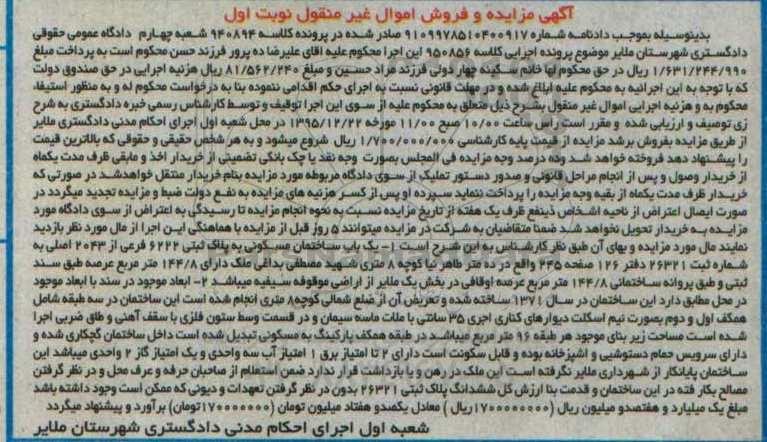 آگهی مزایده و فروش اموال غیر منقول نوبت اول
بدینوسیله بموجب دادنامه شماره ۹۱۰۹۹۷۸۵۱۰۴۰۰۹۱۷ صادر شده در پرونده کلاسه ۹۴۰۸۹۴ شعبه چهارم دادگاه عمومی حقوقی
دادگستری شهرستان ملایر موضوع پرونده اجرایی کلاسه ۹۵۰۸۵۶ این اجرا محکوم علیه اقای علیرضا ده پرور فرزند حسن محکوم است به پرداخت مبلغ
۱/۶۳۱/۲۴۴/۹۹۰ ریال در حق محکوم لها خانم سکینه چهار دولی فرزند مراد حسین و مبلغ ۸۱/۵۶۲/۲۴۰ ریال هزینه اجرایی در حق صندوق دولت
که با توجه به این اجرائیه به محکوم علیه ابلاغ شده و در مهلت قانونی نسبت به اجرای حکم اقدامی ننموده بنا به درخواست محکوم له و به منظور استیفاء
محکوم به و هزینه اجرایی اموال غیر منقول بشرح ذیل متعلق به محکوم علیه از سوی این اجرا توقیف و توسط کارشناس رسمی خبره دادگستری به شرح
زی توصیف و ارزیابی شده و مقرر است راس ساعت ۱۰/۰۰ صبح ۱۱/۰۰ مورخه ۱۳۹۵/۱۲/۲۲ در محل شعبه اول اجرای احکام مدنی دادگستری ملایر
از طریق مزایده بفروش برشد مزایده از قیمت پایه کارشناسی ۱/۷۰۰/۰۰۰/۰۰۰ ریال شروع میشود و به هر شخص حقیقی و حقوقی که بالاترین قیمت
را پیشنهاد دهد فروخته خواهد شد وده درصد وجه مزایده فی المجلس بصورت وجه نقد یا چک بانکی تضمینی از خریدار اخذ و مابقی ظرف مدت یکماه
از خریدار وصول و پس از انجام مراحل قانونی و صدور دستور تملیک از سوی دادگاه مربوطه مورد مزایده بنام خریدار منتقل خواهدشد در صورتی که
خریدار ظرف مدت یکماه از بقیه وجه مزایده را پرداخت ننماید سپرده او پس از کسر هزینه های مزایده به نفع دولت ضبط و مزایده تجدید میگردد در
صورت ایصال اعتراض از ناحیه اشخاص ذینفع ظرف یک هفته از تاریخ مزایده نسبت به نحوه انجام مزایده تا رسیدگی به اعتراض از سوی دادگاه مورد
مزایده به خریدار تحویل نخواهد شد ضمنا متقاضیان به شرکت در مزایده میتوانند ۵ روز قبل از مزایده با هماهنگی این اجرا از مال مورد نظر بازدید
نمایند مال مورد مزایده و بهای آن طبق نظر کارشناس به این شرح است ۱- یک باب ساختمان مسکونی به پلاک ثبتی ۶۲۲۲ فرعی از ۲۰۴۳ اصلی به
شماره ثبت ۲۶۳۲۱ دفتر ۱۲۶ صفحه ۲۴۵ واقع در ده متر طاهر نیا کوچه ۸ متری شهید مصطفی بداقی ملک دارای ۱۴۴/۸ متر مربع عرصه طبق سند
ثبتی و طبق پروانه ساختمانی ۱۴۴/۸ متر مربع عرصه اوقافی در بخش یک ملایر از اراضی موقوفه سیفیه میباشد ۲- ابعاد موجود در سند با ابعاد موجود
در محل مطابق دارد این ساختمان در سال ۱۳۷۱ ساخته شده و تعریض آن از ضلع شمالی کوچه۸ متری انجام شده است این ساختمان در سه طبقه شامل
همکف اول و دوم بصورت نیم اسکلت دیوارهای کناری اجری ۳۵ سانتی با ملات ماسه سیمان و در قسمت وسط ستون فلزی با سقف آهنی و طاق ضربی اجرا
شده است مساحت زیر بنای موجود هر طبقه ۹۶ متر مربع میباشد در طبقه همکف پارکینگ به مسکونی تبدیل شده است داخل ساختمان گچکاری شده و
دارای سرویس حمام دستوشیی و اشپزخانه بوده و قابل سکونت است دارای ۲ تا امتیاز برق ۱ امتیاز آب سه واحدی و یک امتیاز گاز ۲ واحدی میباشد این
ساختمان پایانکار از شهرداری ملایر نگرفته است این ملک در رهن و یا بازداشت قرار ندارد ضمن استعلام از صاحبان حرفه و عرف محل و در نظر گرفتن
مصالح بکار فته در این ساختمان و قدمت بنا ارزش کل ششدانگ پلاک ثبتی ۲۶۳۲۱ بدون در نظر گرفتن تعهدات و دیونی که ممکن است وجود داشته باشد
مبلغ یک میلیارد و هفتصدو میلیون ریال (۱۷۰۰۰۰۰۰۰۰ریال ) معادل یکصدو هفتاد میلیون تومان (۱۷۰۰۰۰۰۰۰تومان) برآورد و پیشنهاد میگردد
شعبه اول اجرای احکام مدنی دادگستری شهرستان ملایر